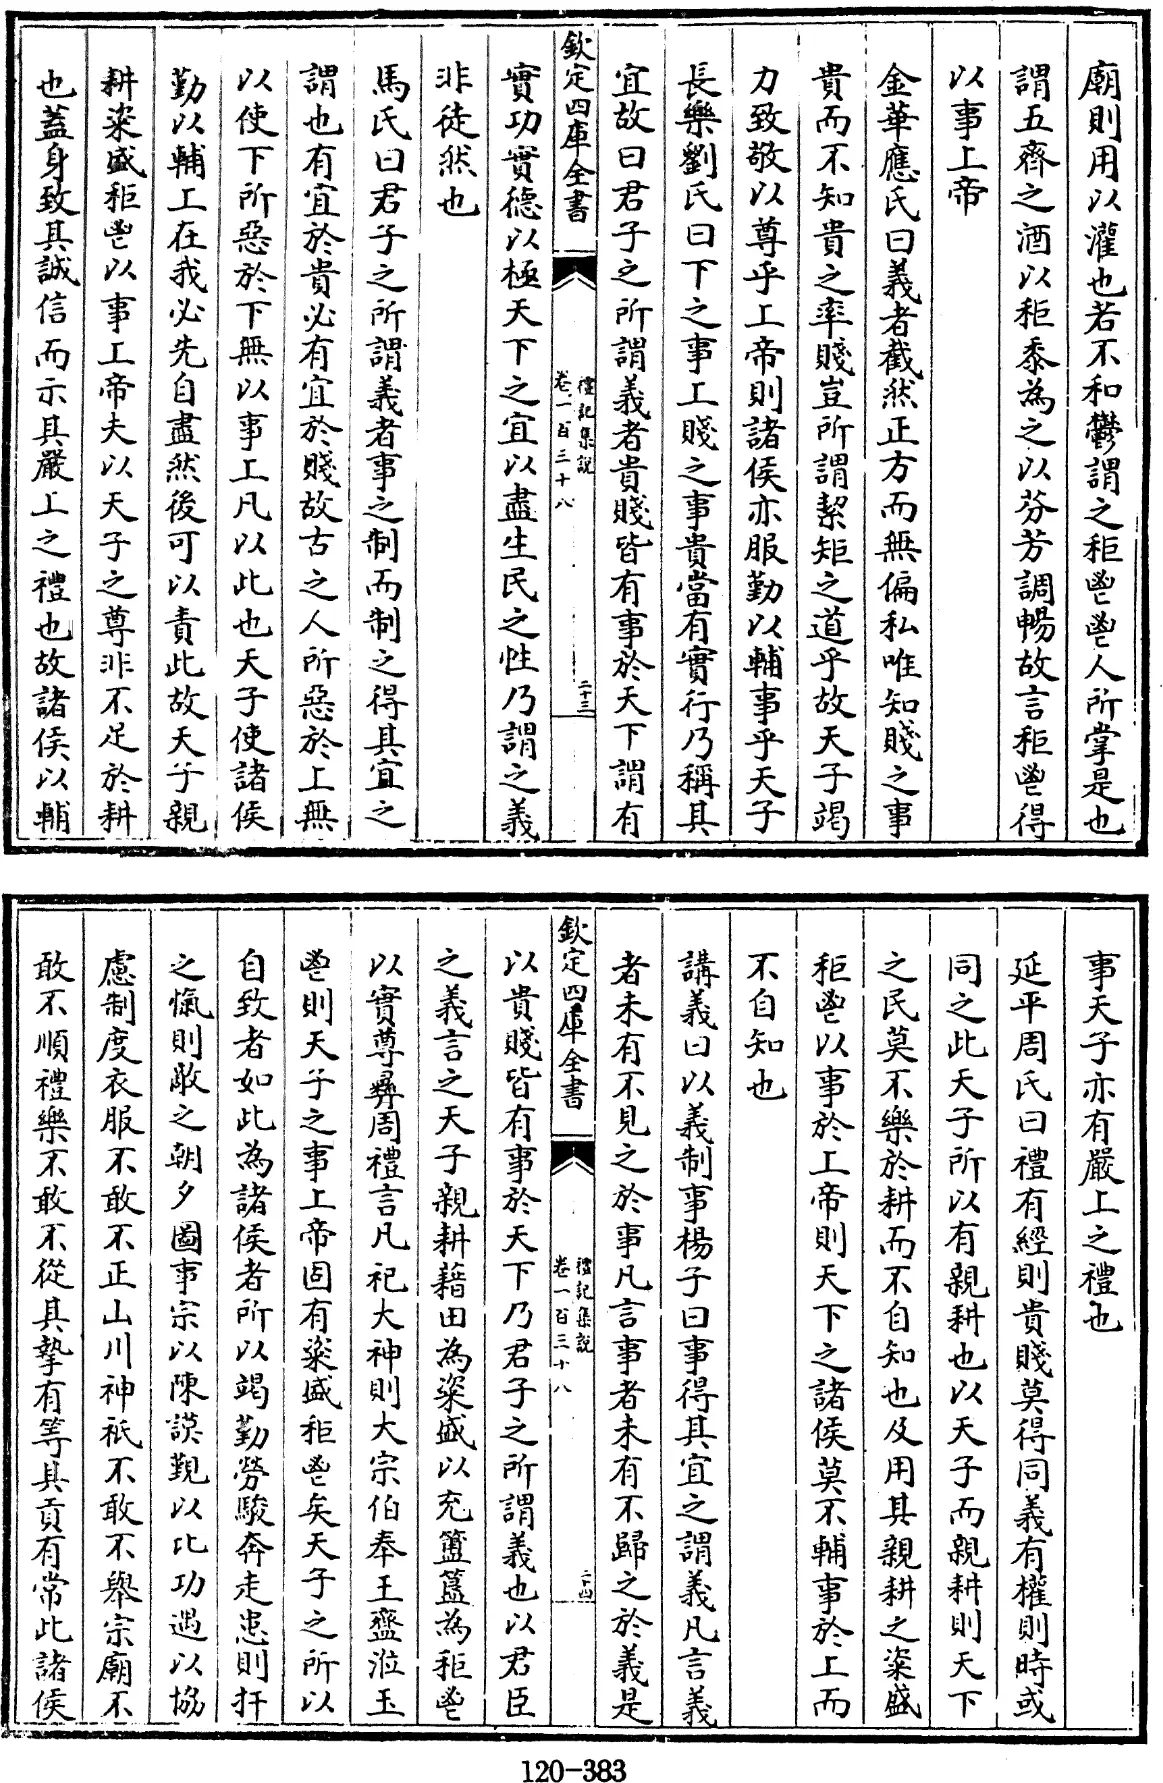 廟則用以灌也若不和鬱謂之秬鬯鬯人所掌是也
謂五齊之酒以秬黍為之以芬芳調暢故言秬鬯得
以事上帝
金華應氏曰義者截然正方而無偏私唯知賤之事
貴而不知貴之率賤豈所謂絜矩之道乎故天子竭
力致敬以尊乎上帝則諸侯亦服勤以輔事乎天子
長樂劉氏曰下之事上賤之事貴當有實行乃稱其
宜故曰君子之所謂義者貴賤皆有事於天下謂有
欽定四庫全書
禮記集說
卷一百三十八
二十三
實功實德以極天下之宜以盡生民之性乃謂之義
非徒然也
馬氏曰君子之所謂義者事之制而制之得其宜之
謂也有宜於貴必有宜於賤故古之人所惡於上無
以使下所惡於下無以事上凡以此也天子使諸侯
勤以輔上在我必先自盡然後可以責此故天子親
耕粢盛秬鬯以事上帝夫以天子之尊非不足於耕
也蓋身致其誠信而示其嚴上之禮也故諸侯以輔
事天子亦有嚴上之禮也
延平周氏曰禮有經則貴賤莫得同義有權則時或
同之此天子所以有親耕也以天子而親耕則天下
之民莫不樂於耕而不自知也及用其親耕之粢盛
秬鬯以事於上帝則天下之諸侯莫不輔事於上而
不自知也
講義曰以義制事楊子曰事得其宜之謂義凡言義
者未有不見之於事凡言事者未有不歸之於義是
欽定四庫全書
禮記集說
卷一百三十八
二十四
以貴賤皆有事於天下乃君子之所謂義也以君臣
之義言之天子親耕藉田為粢盛以充簠簋為秬鬯
以實尊彞周禮言凡祀大神則大宗伯奉玉齍涖玉
鬯則天子之事上帝固有粢盛秬鬯矣天子之所以
自致者如此為諸侯者所以竭勤勞駿奔走患則扞
之愾則敵之朝夕圖事宗以陳謨覲以比功遇以協
慮制度衣服不敢不正山川神祇不敢不舉宗廟不
敢不順禮樂不敢不從其摯有等其貢有常此諸侯
120-383